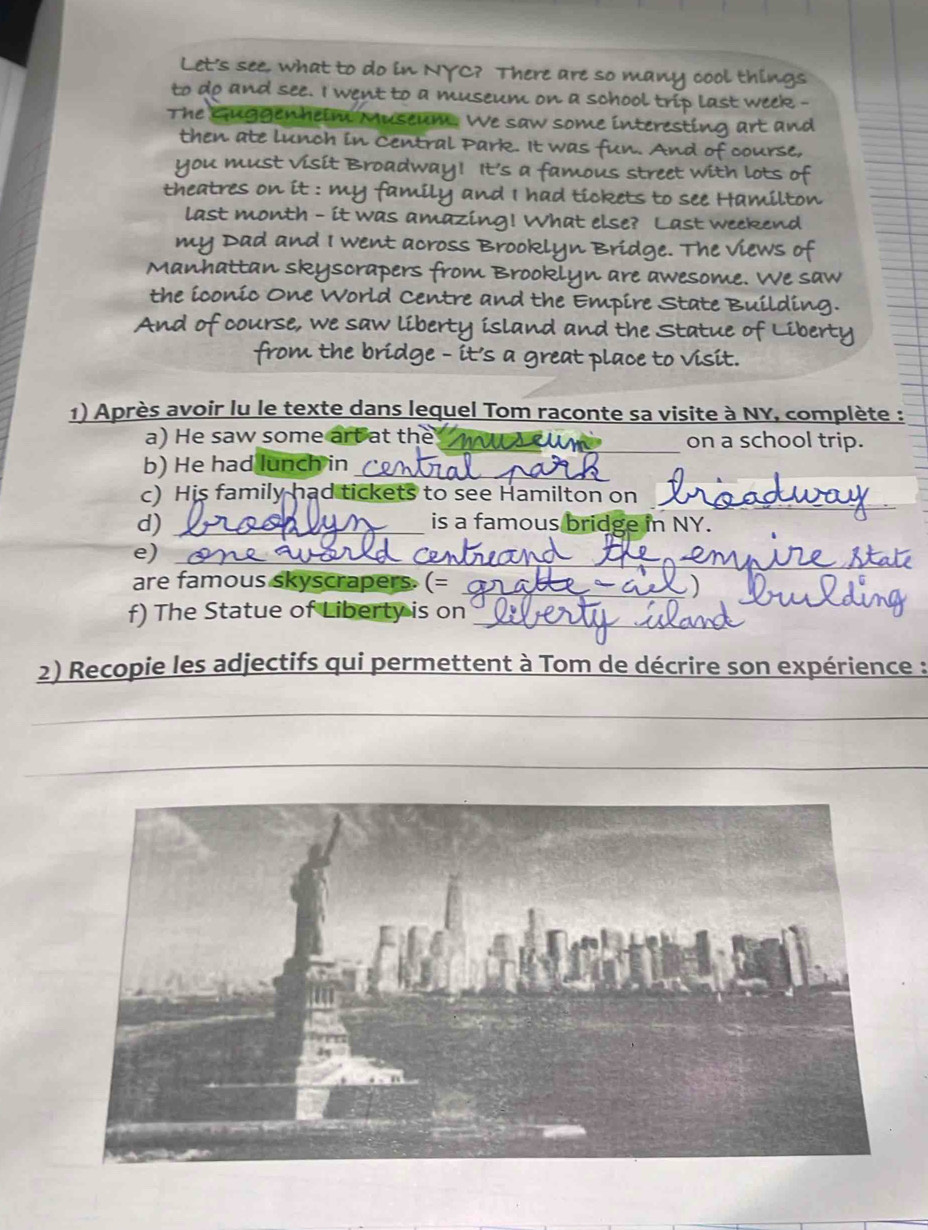 Let's see, what to do in NYC? There are so many cool things
to do and see. I went to a museum on a school trip last week -
The Guggenheim Museum. We saw some interesting art and
then ate lunch in Central Park. It was fun. And of course,
you must visit Broadway! It's a famous street with lots of
theatres on it : my family and I had tickets to see Hamilton
last month - it was amazing! What else? Last weekend
my Dad and I went across Brooklyn Bridge. The views of
Manhattan skyscrapers from Brooklyn are awesome. We saw
the iconic One World Centre and the Empire State Building.
And of course, we saw liberty island and the Statue of Liberty
from the bridge - it's a great place to visit.
1) Après avoir lu le texte dans lequel Tom raconte sa visite à NY, complète :
a) He saw some art at the museum on a school trip.
b) He had lunch in central park
c) His family had tickets to see Hamilton on broadway.
d) brooklyn is a famous bridge in NY.
e) one world centre and the empire state
are famous skyscrapers. (= gratte-ciel) building
f) The Statue of Liberty is on liberty island
2) Recopie les adjectifs qui permettent à Tom de décrire son expérience :